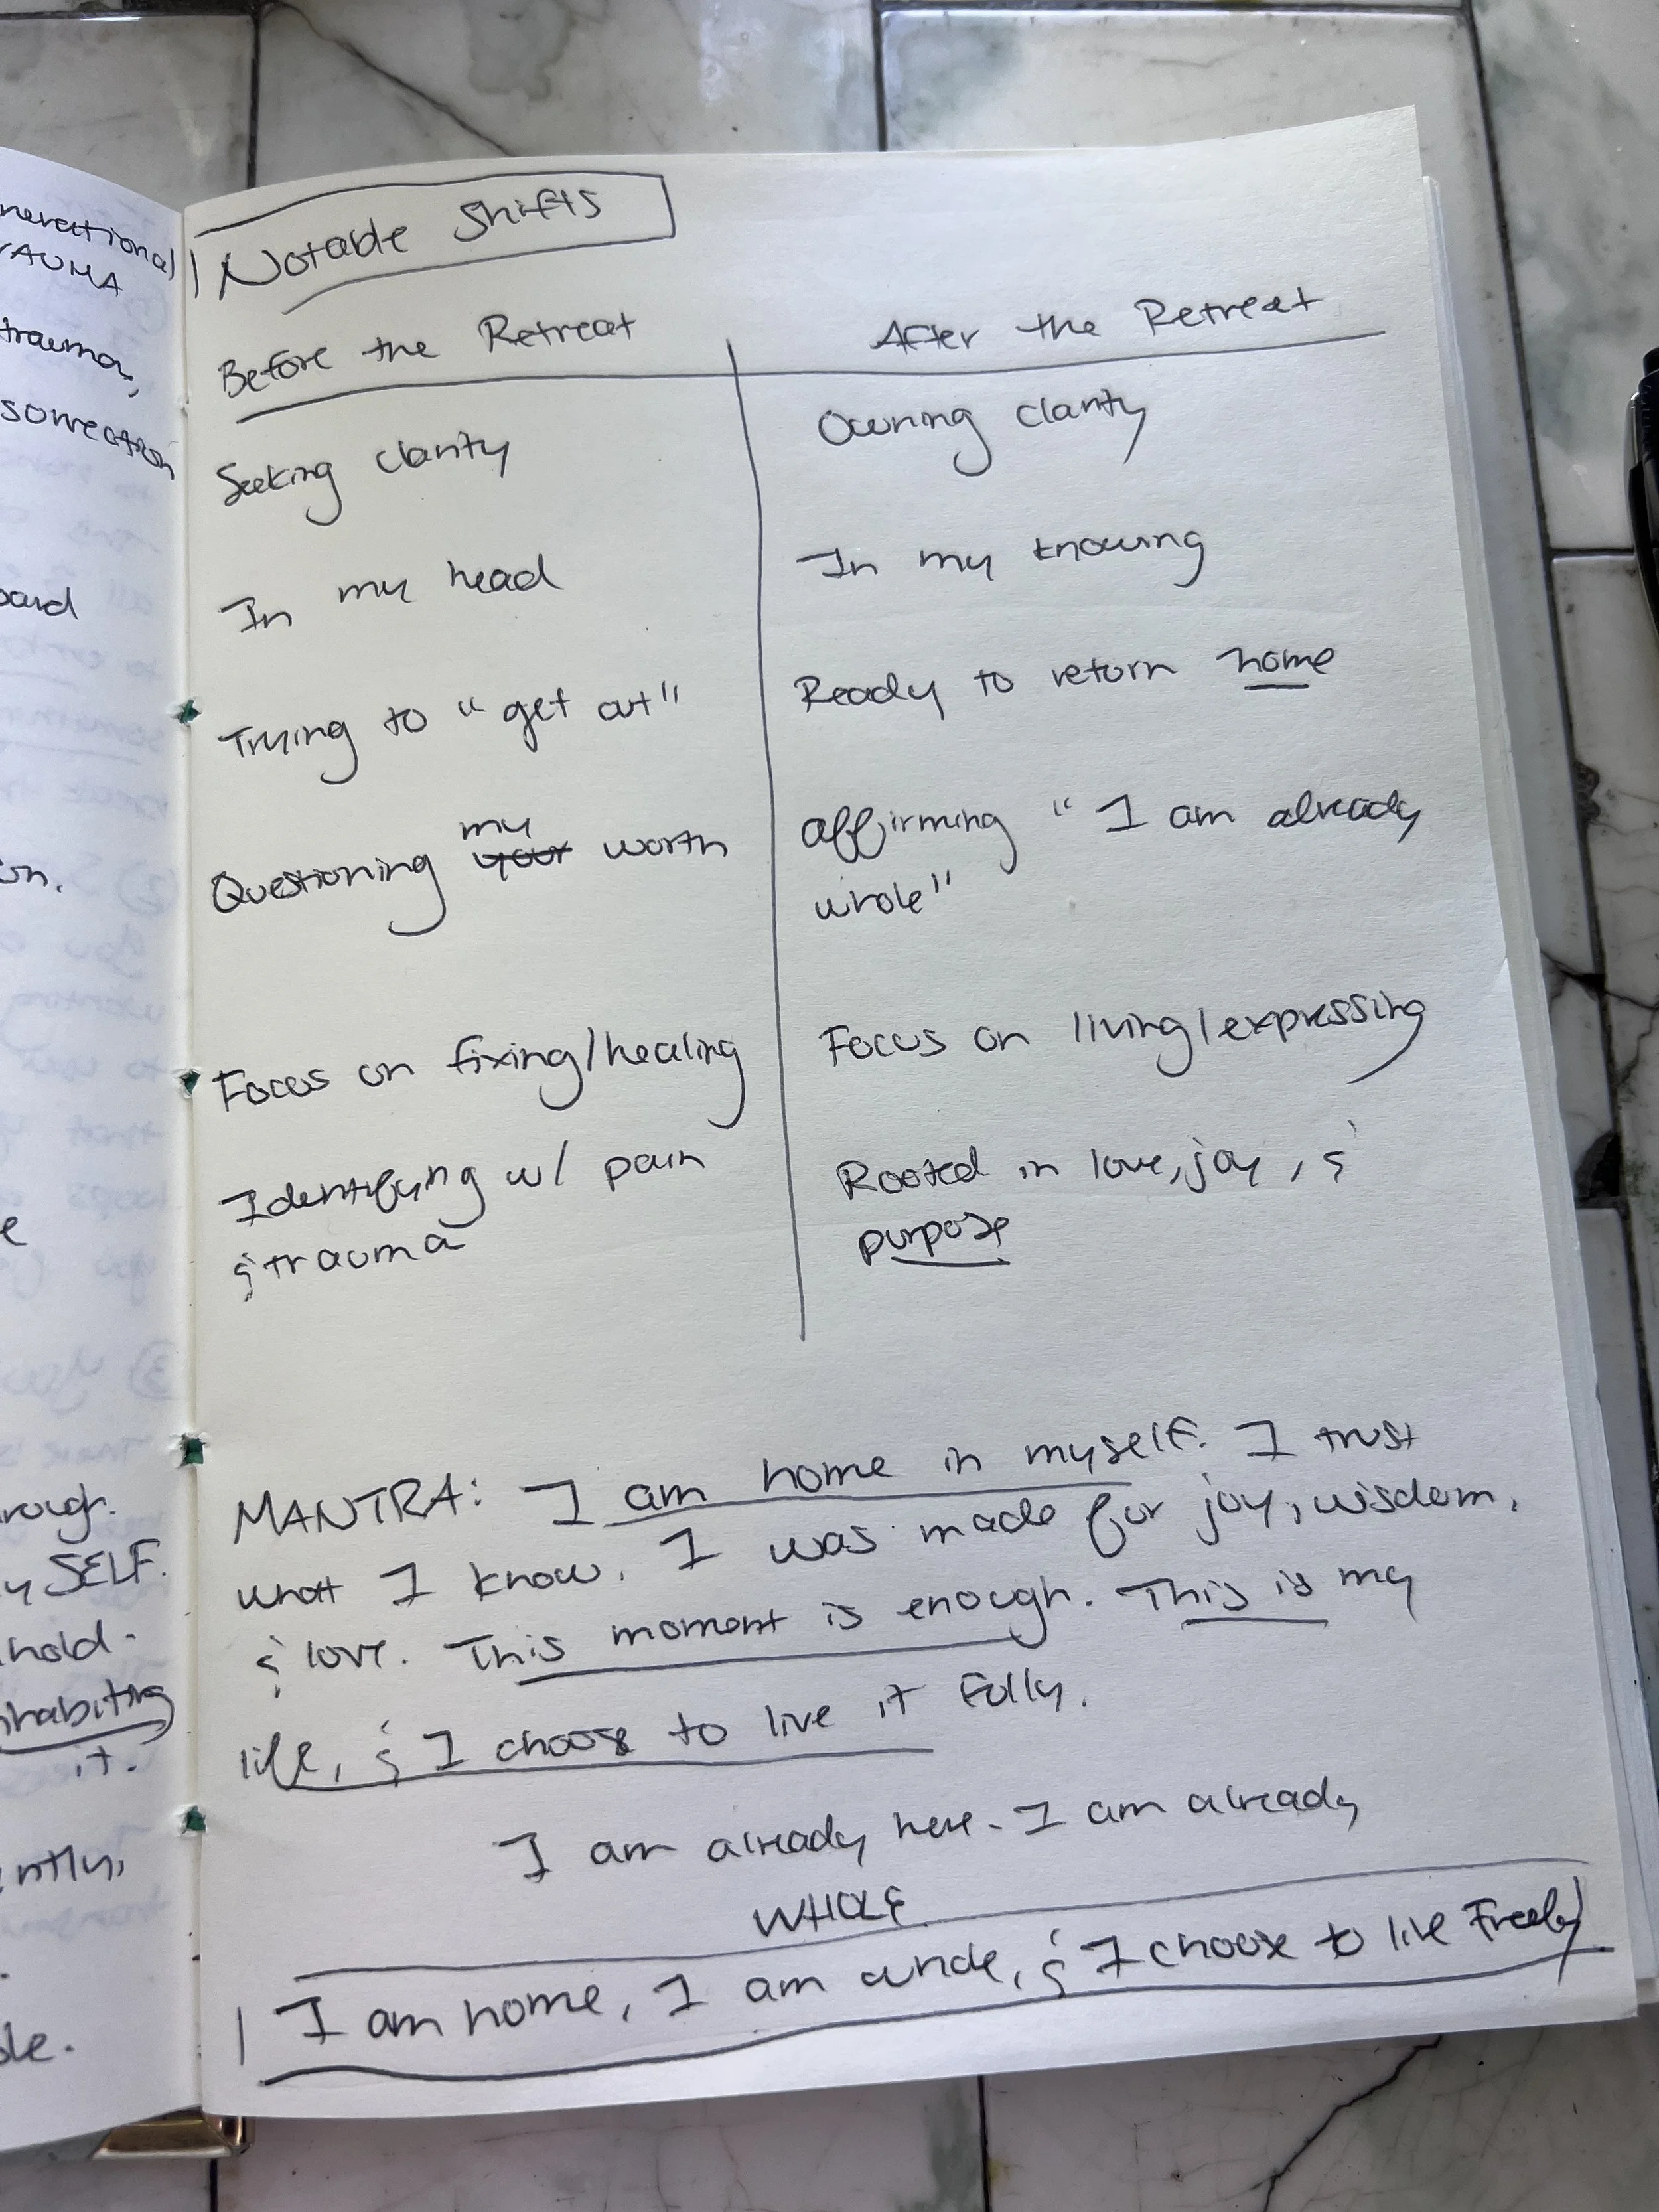 nerational
trauma,
pard
on.
e
rough.
y SELF.
hold.
nhabiting
it.
ntly,
ble.
Notable Shifts
Before the Retreat
After the Retreat
Seeking clarity
Owning clarity
In my head
In my knowing
Trying to "get out"
Ready to return home
my
Questioning your worth
affirming "I am already
whole"
Focus on fixing/healing
Focus on living/expressing
Identifying w/ pain
& trauma
Rooted in love, joy, &
purpose
MANTRA: I am home in myself. I trust
what I know. I was made for joy, wisdom,
& love. This moment is enough. This is my
life, & I choose to live it fully.
I am already here. I am already
WHOLE
I am home, I am whole, & I choose to live Freely